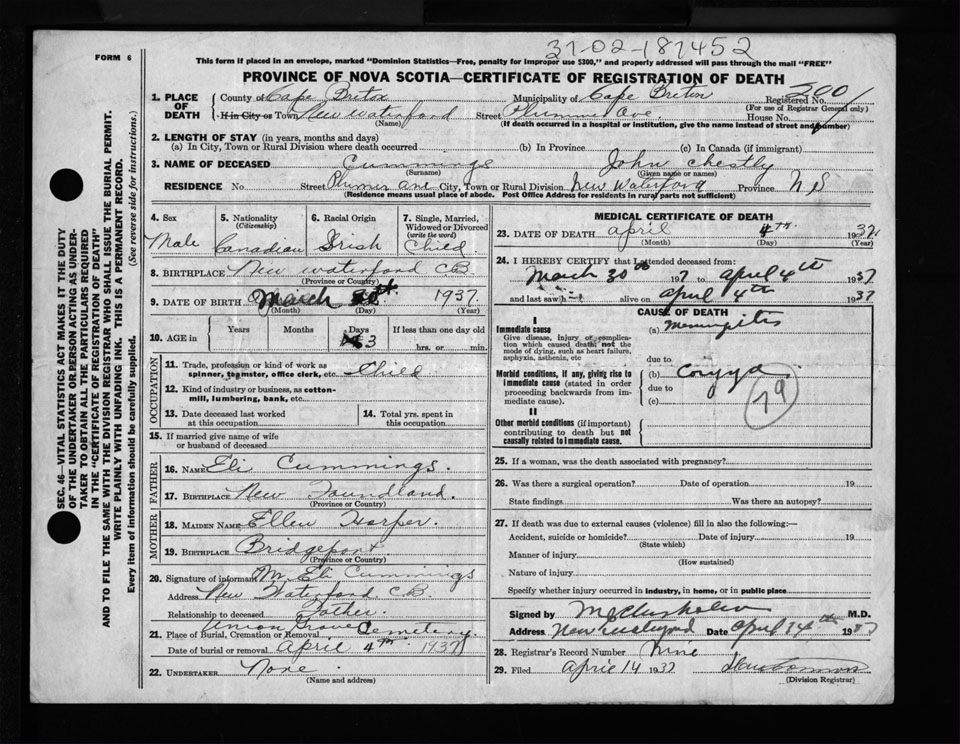 37-02-187452
FORM 6
This form if placed in an envelope, marked "Dominion Statistics—Free, penalty for improper use $300," and properly addressed will pass through the mail "FREE"
PROVINCE OF NOVA SCOTIA—CERTIFICATE OF REGISTRATION OF DEATH
1. PLACE OF DEATH
County of Cape Breton Municipality of Cape Breton Registered No.
(For use of Registrar General only)
If in City or Town New Waterford Street Plummer Ave. House No.
(Name) (If death occurred in a hospital or institution, give the name instead of street and number)
2. LENGTH OF STAY (in years, months and days)
(a) In City, Town or Rural Division where death occurred (b) In Province (c) In Canada (if immigrant)
3. NAME OF DECEASED Cummings John Chestly
(Surname) (Given name or names)
RESIDENCE No Street Plumer ave City, Town or Rural Division New Waterford Province N S
(Residence means usual place of abode. Post Office Address for residents in rural parts not sufficient)
4. Sex
Male
5. Nationality
(Citizenship)
Canadian
6. Racial Origin
Irish
7. Single, Married, Widowed or Divorced
(write the word)
Child
8. BIRTHPLACE New Waterford CB
(Province or Country)
9. DATE OF BIRTH March 1937.
(Month) (Day) (Year)
10. AGE in
Years Months Days If less than one day old
3 hrs. or min.
OCCUPATION
11. Trade, profession or kind of work as spinner, teamster, office clerk, etc. Child
12. Kind of industry or business, as cotton-mill, lumbering, bank, etc.
13. Date deceased last worked at this occupation
14. Total yrs. spent in this occupation
15. If married give name of wife or husband of deceased
FATHER
16. NAME Eli Cummings.
17. BIRTHPLACE New Foundland.
(Province or Country)
MOTHER
18. MAIDEN NAME Ellen Harper.
19. BIRTHPLACE Bridgeport.
(Province or Country)
20. Signature of informant Mr. Eli Cummings
Address New Waterford C B.
Relationship to deceased Father.
21. Place of Burial, Cremation or Removal Union Grove Cemetery.
Date of burial or removal April 4th. 1937
22. UNDERTAKER None.
(Name and address)
MEDICAL CERTIFICATE OF DEATH
23. DATE OF DEATH april 4th. 1937
(Month) (Day) (Year)
24. I HEREBY CERTIFY that I attended deceased from:
March 30th 1937 to april 4th 1937
and last saw h alive on april 4th 1937
CAUSE OF DEATH
I
Immediate cause
Give disease, injury or complication which caused death, not the mode of dying, such as heart failure, asphyxia, asthenia, etc
(a) Meningitis
due to
Morbid conditions, if any, giving rise to immediate cause (stated in order proceeding backwards from immediate cause).
(b) Coryza
due to
(c)
79
II
Other morbid conditions (if important) contributing to death but not causally related to immediate cause.
25. If a woman, was the death associated with pregnancy?
26. Was there a surgical operation? Date of operation 19
State findings Was there an autopsy?
27. If death was due to external causes (violence) fill in also the following:—
Accident, suicide or homicide? Date of injury 19
(State which)
Manner of injury
(How sustained)
Nature of injury
Specify whether injury occurred in industry, in home, or in public place
Signed by M.D.
Address New Waterford Date April 14th 1937
28. Registrar's Record Number Nine
29. Filed April 14 1937
(Division Registrar)
SEC. 46—VITAL STATISTICS ACT MAKES IT THE DUTY OF THE UNDERTAKER OR PERSON ACTING AS UNDERTAKER TO OBTAIN ALL THE PARTICULARS REQUIRED IN THE "CERTIFICATE OF REGISTRATION OF DEATH" AND TO FILE THE SAME WITH THE DIVISION REGISTRAR WHO SHALL ISSUE THE BURIAL PERMIT.
WRITE PLAINLY WITH UNFADING INK. THIS IS A PERMANENT RECORD.
Every item of information should be carefully supplied. (See reverse side for instructions.)